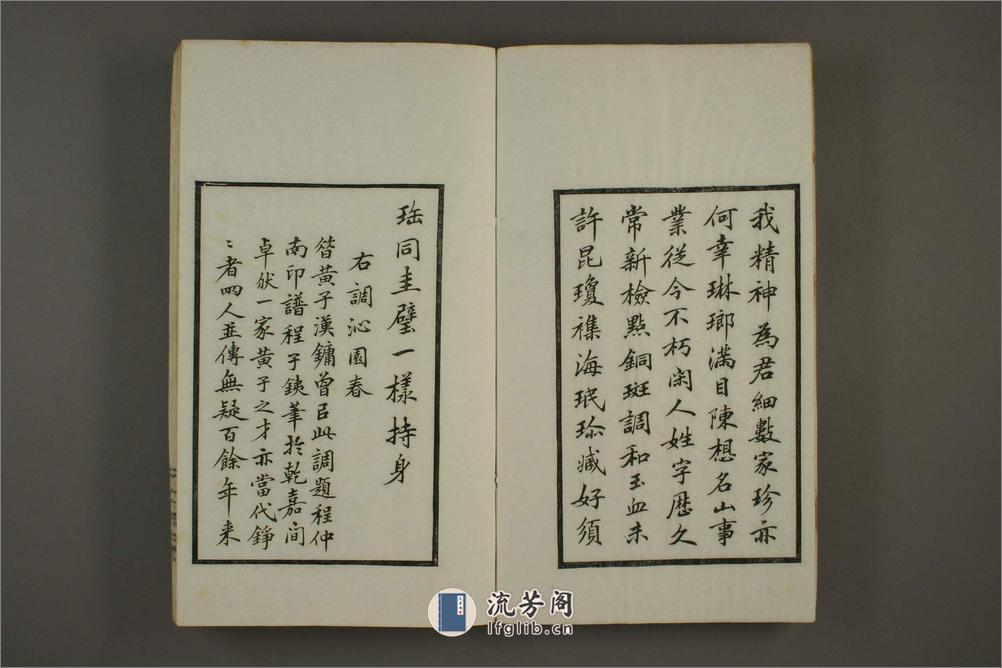 我精神為君細數家珍亦
何幸琳瑯滿目陳想名山事
業從今不朽閑人姓字歷久
常新檢點銅斑調和玉血未
許昆瓊襍海珉珎臧好須
珤同圭璧一樣持身
右調沁園春
昝黃子漢鏞曾㠯此調題程仲
南印譜程子銕華於乾嘉間
卓然一家黃子之才亦當代錚
〻者四人並傳無疑百餘年来
流芳阁
lfglib.cn